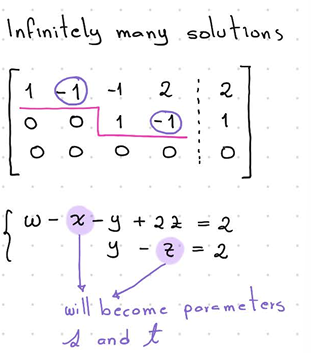 Infinitely many solutions
1 -1 -1 2 2
0 0 1 -1 1
0 0 0 0 0
w - x - y + 2z = 2
y - z = 2
will become parameters
s and t